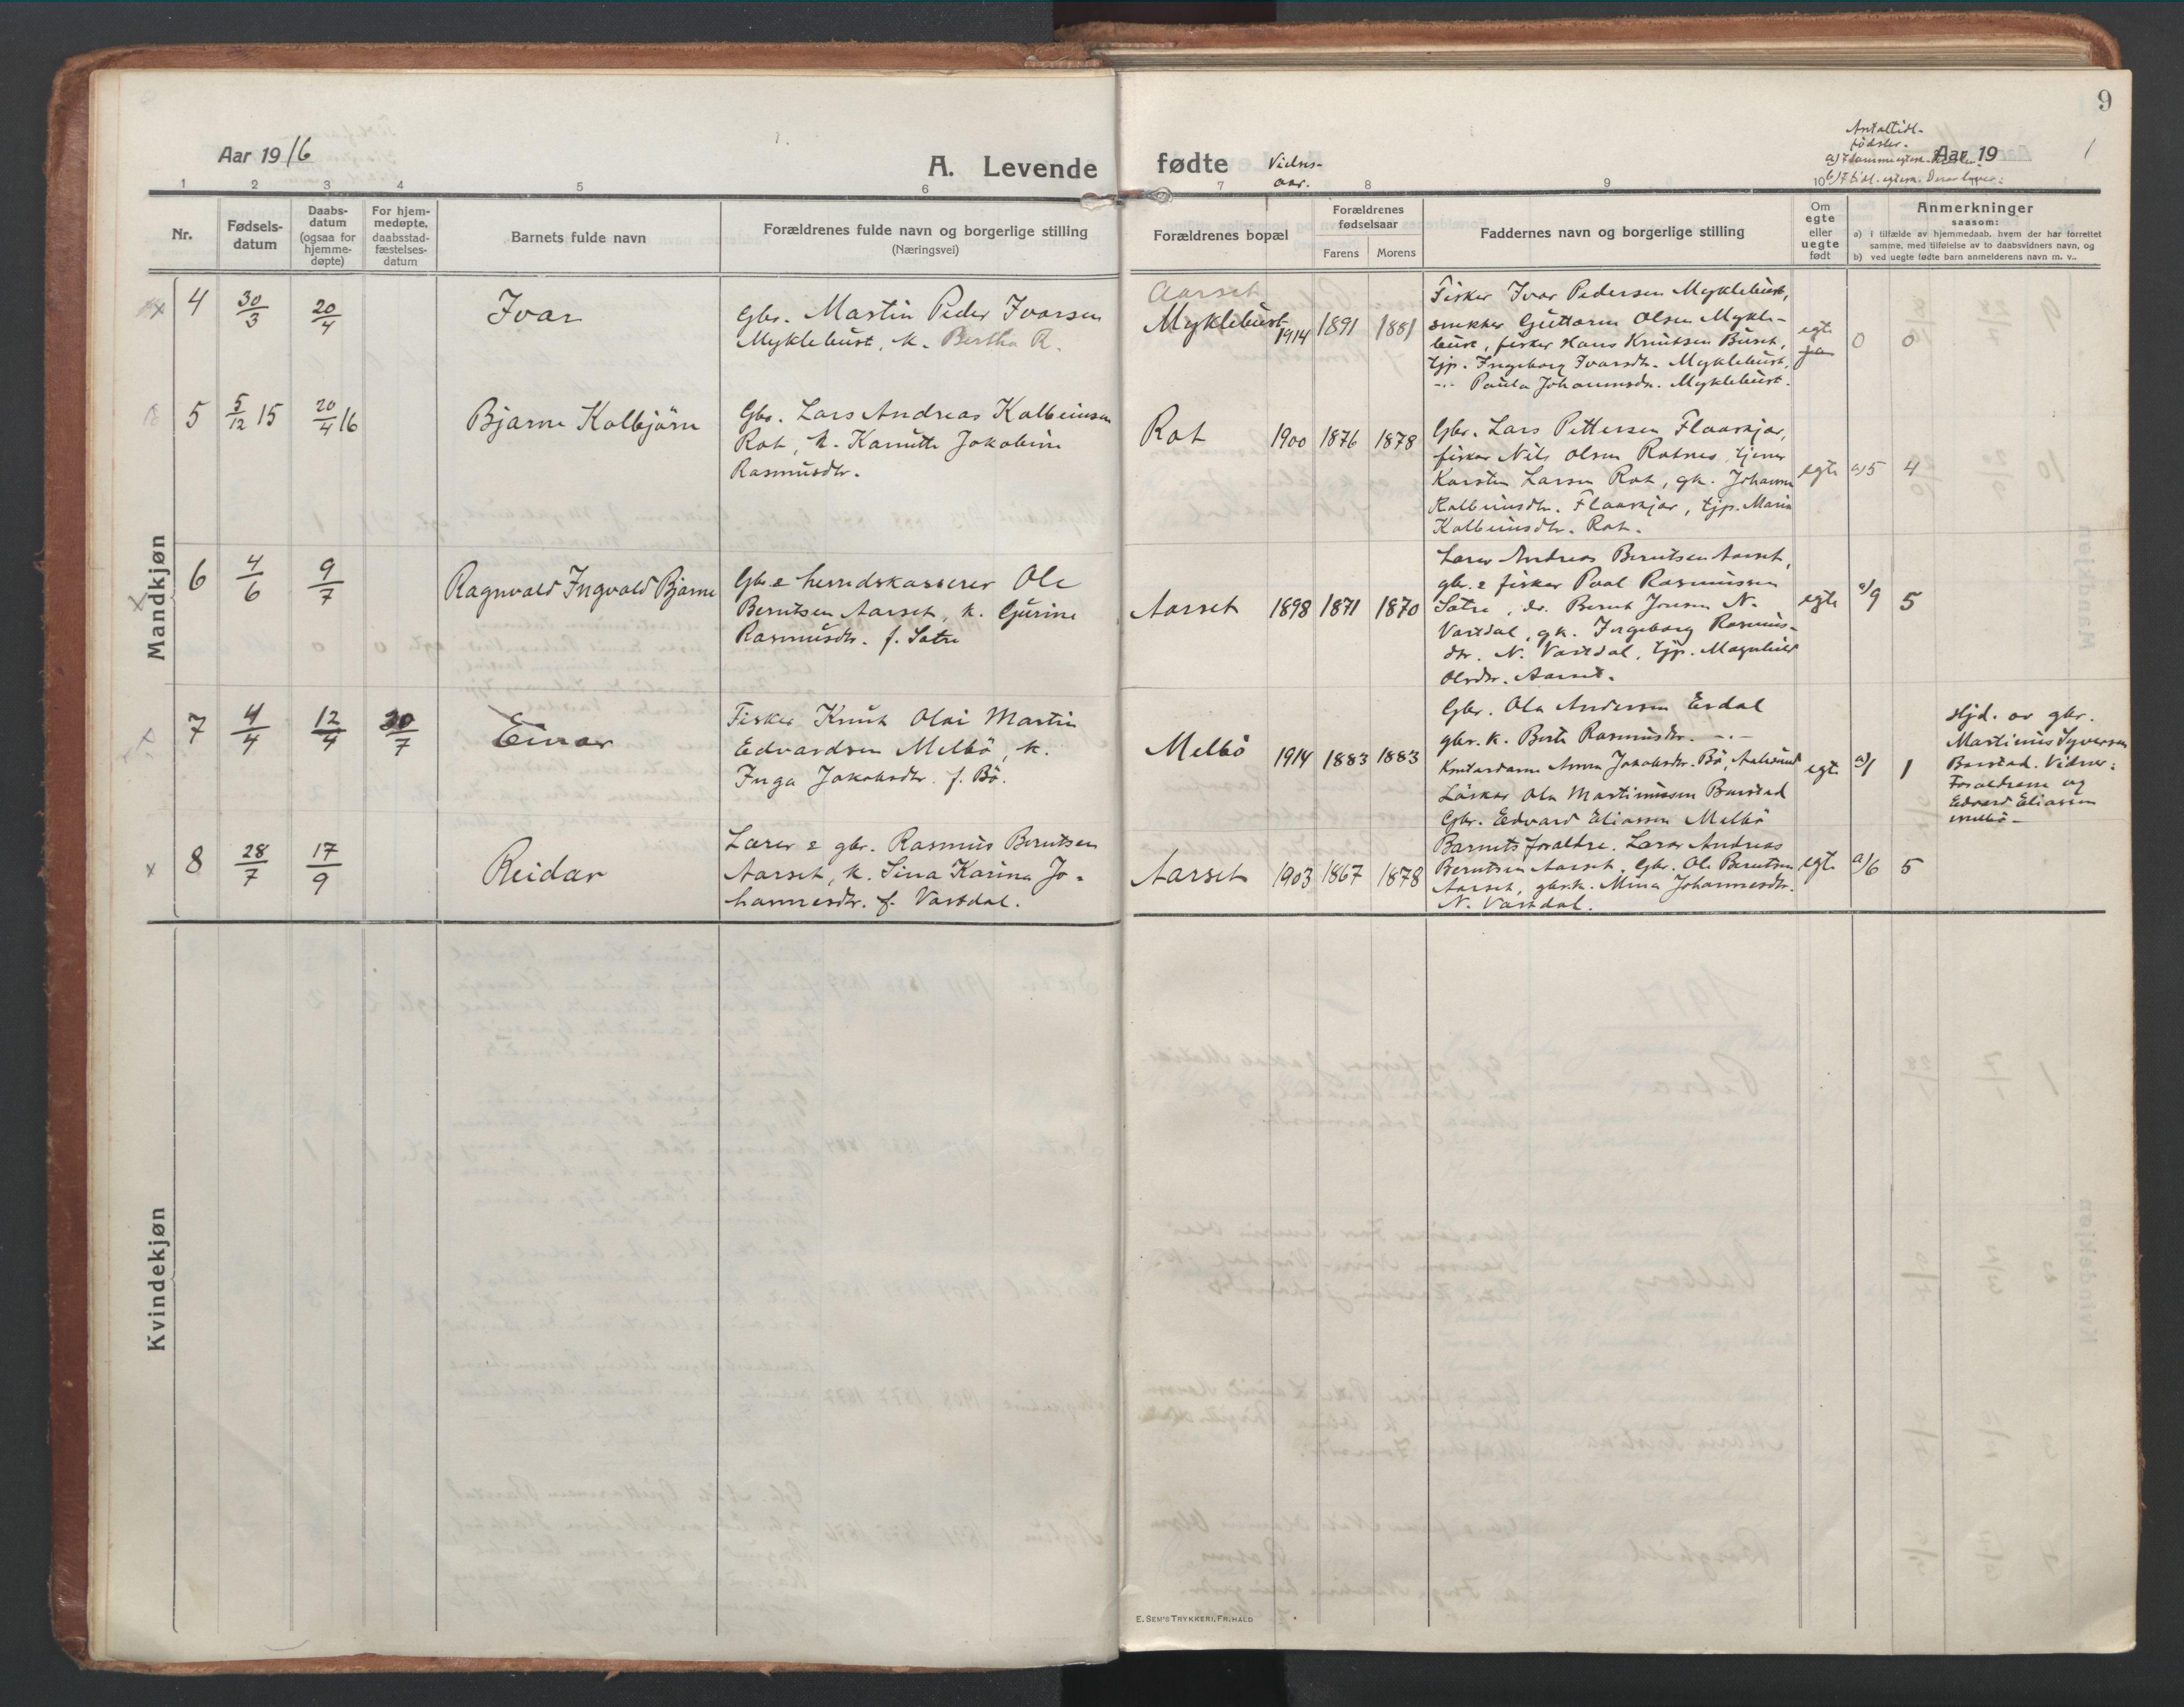 9
Aar 19 16
A. Levende
fødte
Vielses-
aar.
Antal tidl.
fødsler.
Aar 19
1
1 2 3 4 5 6 7 8 9 10
Nr.
Fødsels-
datum
Daabs-
datum
(ogsaa for
hjemme-
døpte)
For hjem-
medøpte,
daabsstad-
fæstelses-
datum
Barnets fulde navn
Forældrenes fulde navn og borgerlige stilling
(Næringsvei)
Forældrenes bopæl
Forældrenes
fødselsaar
Farens Morens
Faddernes navn og borgerlige stilling
Om
egte
eller
uegte
født
Anmerkninger
saasom:
a) i tilfælde av hjemmedaab, hvem der har forrettet
samme, med tilføielse av to daabsvidners navn, og
b) ved uegte fødte barn anmelderens navn m. v..
Mandkjøn
4 30/3 20/4
Ivar
Gbr. Martin Peder Ivarsen
Myklebust, k. Bertha R.
Aarset
Myklebust 1914 1891 1881
Fisker Ivar Pedersen Myklebust,
snekker Guttorm Olsen Mykle-
bust, fisker Hans Knutsen Buset,
tjp. Ingeborg Ivarsdtr. Myklebust,
-"- Paula Johannesdtr. Myklebust.
egte
ja
0 0
5 5/12 15 20/4 16
Bjarne Kolbjörn
Gbr. Lars Andreas Kolbeinsen
Rot, k. Kanutte Jakobine
Rasmusdtr.
Rot 1900 1876 1878
Gbr. Lars Pettersen Flaaskjær,
fisker Nils Olsen Rotnes, tjener
Karsten Larsen Rot, gk. Johanne
Kolbeinsdtr. Flaaskjær, tjp. Marie
Kolbeinsdtr. Rot.
egte a) 5 4
6 4/6 9/7
Ragnvald Ingvald Bjarne
Gbr. & herredskasserer Ole
Berntsen Aarset, k. Gurine
Rasmusdtr. f. Sætre
Aarset 1898 1871 1870
Lærer Andreas Berntsen Aarset,
gbr. & fisker Paal Rasmussen
Sætre, do. Bernt Jonsen N.
Vartdal, gk. Ingeborg Rasmus-
dtr. N. Vartdal, tjp. Magnhild
Olsdtr. Aarset.
egte a) 9 5
7 4/4 12/4 30/7
Einar
Fisker Knut Olai Martin
Edvardsen Melbö, k.
Inga Jakobsdtr. f. Bö.
Melbö 1914 1883 1883
Gbr. Ola Andersen Erdal
gbr. k. Berte Rasmusdtr. -"-
Kontordame Anna Jakobsdtr. Bö, Aalesund
Ola Martinussen Barstad
Gbr. Edvard Eliassen Melbö
egte a) 1 1
Hjd. av gbr.
Martinus Syversen
Barstad. Vidner:
Forældrene og
Edvard Eliassen
Melbö
8 28/7 17/9
Reidar
Lærer & gbr. Rasmus Berntsen
Aarset, k. Lina Karina Jo-
hannesdtr. f. Vartdal.
Aarset 1903 1867 1878
Barnets forældre. Lærer Andreas
Berntsen Aarset, Gbr. Ole Berntsen
Aarset, gbr.k. Mina Johannesdtr.
N. Vartdal.
egte a) 6 5
Kvindekjøn
E. SEM'S TRYKKERI, FR.HALD